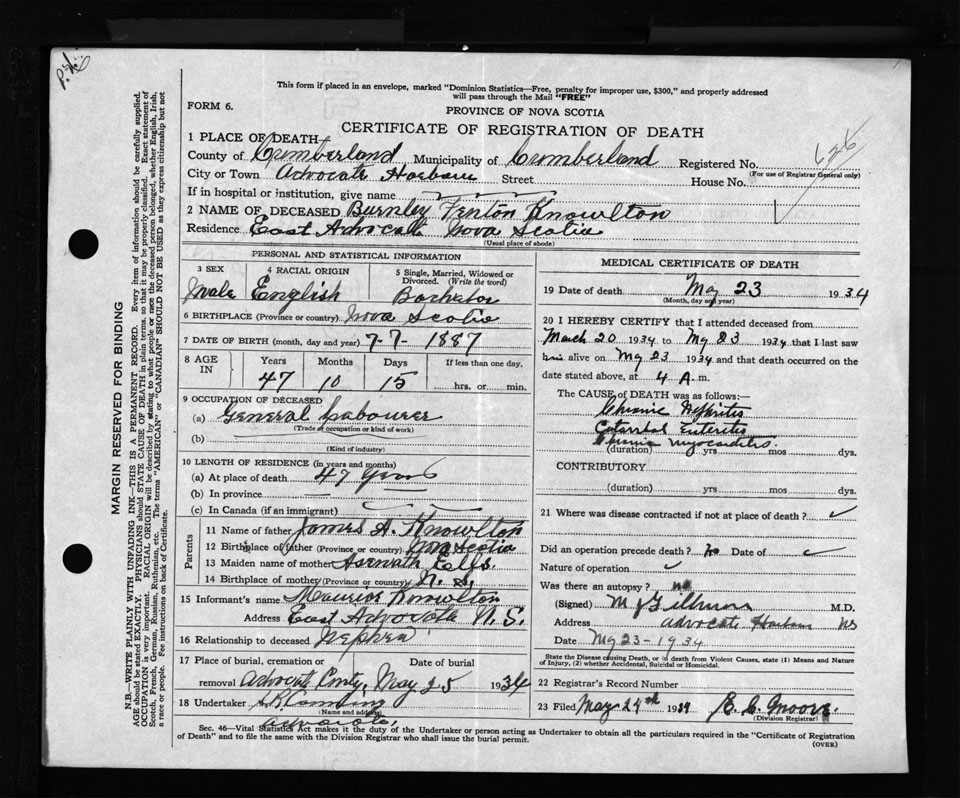 This form if placed in an envelope, marked "Dominion Statistics—Free, penalty for improper use, $300," and properly addressed
will pass through the Mail "FREE"
FORM 6.
PROVINCE OF NOVA SCOTIA
CERTIFICATE OF REGISTRATION OF DEATH
1 PLACE OF DEATH—
County of Cumberland Municipality of Cumberland Registered No.
626
(For use of Registrar General only)
City or Town Advocate Harbour Street House No.
If in hospital or institution, give name
2 NAME OF DECEASED Burnley Fenton Knowlton
Residence East Advocate Nova Scotia
(Usual place of abode)
PERSONAL AND STATISTICAL INFORMATION
3 SEX 4 RACIAL ORIGIN 5 Single, Married, Widowed or Divorced. (Write the word)
Male English Bachelor
6 BIRTHPLACE (Province or country) Nova Scotia
7 DATE OF BIRTH (month, day and year) 7-7- 1887
8 AGE IN Years Months Days If less than one day,
47 10 15 hrs. or min.
9 OCCUPATION OF DECEASED
(a) General Labourer
(Trade or occupation or kind of work)
(b)
(Kind of industry)
10 LENGTH OF RESIDENCE (in years and months)
(a) At place of death 47 Years
(b) In province
(c) In Canada (if an immigrant)
Parents
11 Name of father James A. Knowlton
12 Birthplace of father (Province or country) Nova Scotia
13 Maiden name of mother
14 Birthplace of mother (Province or country) N. S.
15 Informant's name Maurice Knowlton
Address East Advocate N. S.
16 Relationship to deceased Nephew
17 Place of burial, cremation or Date of burial
removal Advocate May 25 1934
18 Undertaker
(Name and address)
Advocate
MEDICAL CERTIFICATE OF DEATH
19 Date of death May 23 1934
(Month, day and year)
20 I HEREBY CERTIFY that I attended deceased from
March 20 1934 to My 23 1934 that I last saw
him alive on My 23 1934 and that death occurred on
date stated above, at 4 A. m.
The CAUSE OF DEATH was as follows:
Chronic Nephritis
Catarrhal Enteritis
Chronic myocarditis
(duration) yrs mos dys.
CONTRIBUTORY
(duration) yrs mos dys.
21 Where was disease contracted if not at place of death?
Did an operation precede death? no Date of
Nature of operation
Was there an autopsy? no
(Signed) M.D.
Address Advocate Harbour NS
Date My 23-1934
State the Disease causing Death, or in death from Violent Causes, state (1) Means and Nature
of Injury, (2) whether Accidental, Suicidal or Homicidal.
22 Registrar's Record Number
23 Filed May 24th 1934
(Division Registrar)
Sec. 46—Vital Statistics Act makes it the duty of the Undertaker or person acting as Undertaker to obtain all the particulars required in the "Certificate of Registration
of Death" and to file the same with the Division Registrar who shall issue the burial permit.
(OVER)
MARGIN RESERVED FOR BINDING
N.B.—WRITE PLAINLY WITH UNFADING INK—THIS IS A PERMANENT RECORD. Every item of information should be carefully supplied.
AGE should be stated EXACTLY. PHYSICIANS should STATE CAUSE OF DEATH in plain terms, so that it may be properly classified. Exact statement of
OCCUPATION is very important. RACIAL ORIGIN will be described by stating to what people or race the deceased person belonged, whether English, Irish,
Scotch, French, German, Russian, Ruthenian, etc. The terms "AMERICAN" or "CANADIAN" SHOULD NOT BE USED as they express citizenship but not
a race or people. See instructions on back of Certificate.